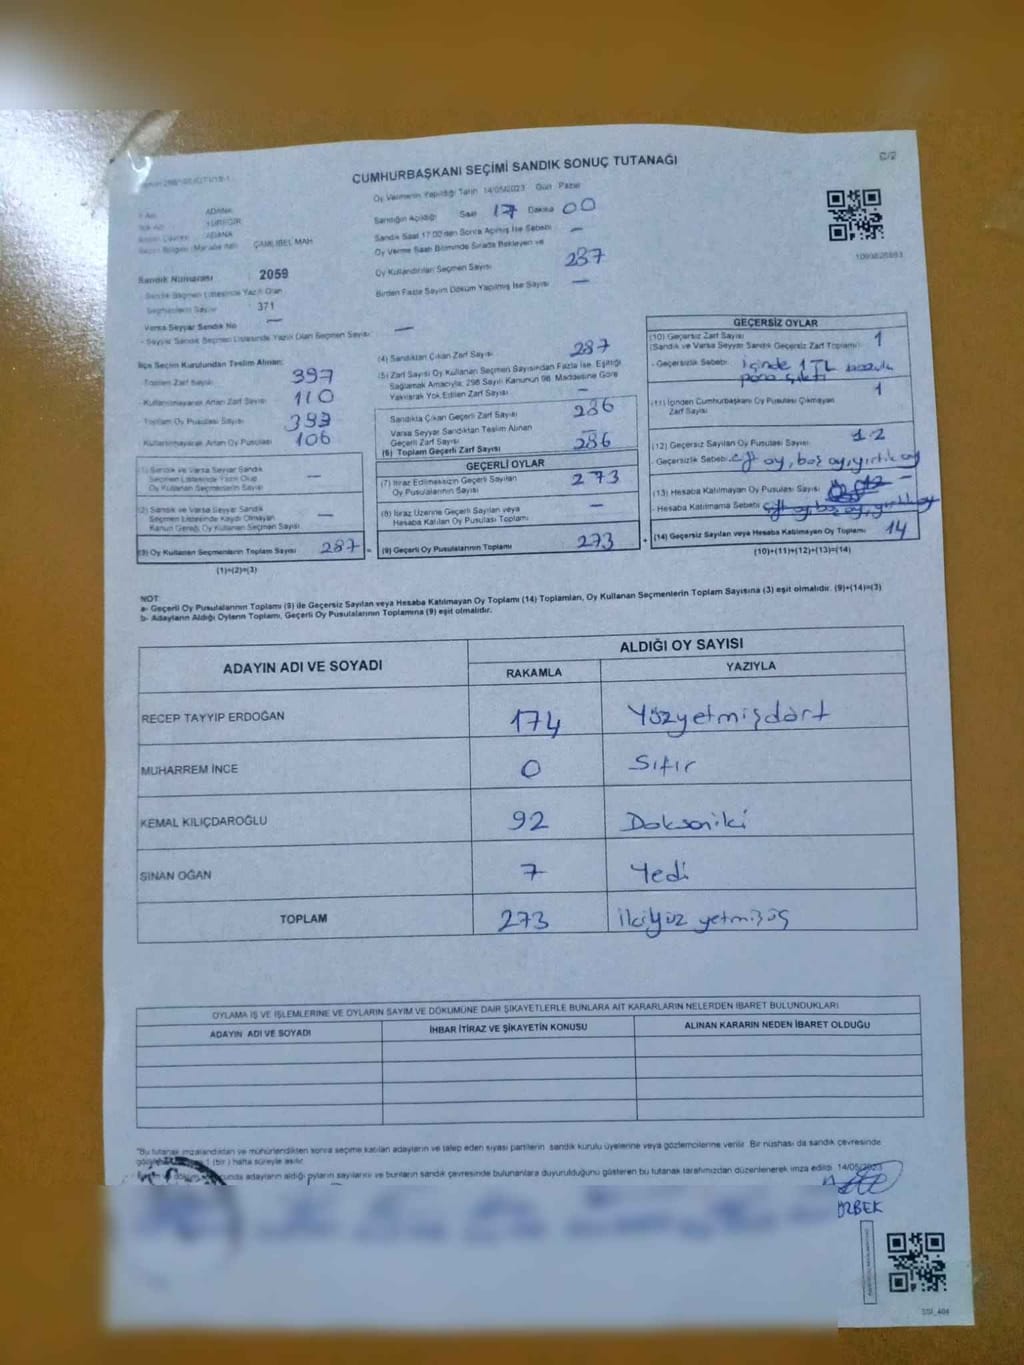 CUMHURBAŞKANI SEÇİMİ SANDIK SONUÇ TUTANAĞI
C/2
Oy Vermenin Yapıldığı Tarih 14/05/2023 Gün Pazar
ADANA
YÜREĞİR
ADANA
ÇAMLIBEL MAH
Sandığın Açıldığı Saat 17 Dakika 00
Sandık Saat 17.00'den Sonra Açılmış İse Sebebi —
Oy Verme Saati Bitiminde Sırada Bekleyen ve
Oy Kullandırılan Seçmen Sayısı 287
Birden Fazla Sayım Döküm Yapılmış İse Sayısı —
Sandık Numarası 2059
Sandık Seçmen Listesinde Yazılı Olan
Seçmenlerin Sayısı 371
Varsa Seyyar Sandık No —
- Seyyar Sandık Seçmen Listesinde Yazılı Olan Seçmen Sayısı —
İlçe Seçim Kurulundan Teslim Alınan:
Toplam Zarf Sayısı 397
- Kullanılmayarak Artan Zarf Sayısı 110
Toplam Oy Pusulası Sayısı
Kullanılmayarak Artan Oy Pusulası 106
(1) Sandık ve Varsa Seyyar Sandık
Seçmen Listesinde Yazılı Olup
Oy Kullanan Seçmenlerin Sayısı —
(2) Sandık ve Varsa Seyyar Sandık
Seçmen Listesinde Kaydı Olmayan
Kanun Gereği Oy Kullanan Seçmen Sayısı —
(3) Oy Kullanan Seçmenlerin Toplam Sayısı 287 =
(1)+(2)=(3)
(4) Sandıktan Çıkan Zarf Sayısı 287
(5) Zarf Sayısı Oy Kullanan Seçmen Sayısından Fazla İse, Eşitliği
Sağlamak Amacıyla, 298 Sayılı Kanunun 98. Maddesine Göre
Yakılarak Yok Edilen Zarf Sayısı —
Sandıkta Çıkan Geçerli Zarf Sayısı 286
Varsa Seyyar Sandıktan Teslim Alınan
Geçerli Zarf Sayısı —
(6) Toplam Geçerli Zarf Sayısı 286
GEÇERLİ OYLAR
(7) İtiraz Edilmeksizin Geçerli Sayılan
Oy Pusulalarının Sayısı 273
(8) İtiraz Üzerine Geçerli Sayılan veya
Hesaba Katılan Oy Pusulası Toplamı —
(9) Geçerli Oy Pusulalarının Toplamı 273 +
GEÇERSİZ OYLAR
(10) Geçersiz Zarf Sayısı 1
(Sandık ve Varsa Seyyar Sandık Geçersiz Zarf Toplamı)
- Geçersizlik Sebebi: içinde 1 TL bozuk
para çıktı
(11) İçinden Cumhurbaşkanı Oy Pusulası Çıkmayan
Zarf Sayısı 1
(12) Geçersiz Sayılan Oy Pusulası Sayısı 12
- Geçersizlik Sebebi: çift oy, boş oy, yırtık oy
(13) Hesaba Katılmayan Oy Pusulası Sayısı —
- Hesaba Katılmama Sebebi
(14) Geçersiz Sayılan veya Hesaba Katılmayan Oy Toplamı 14
(10)+(11)+(12)+(13)=(14)
NOT
a- Geçerli Oy Pusulalarının Toplamı (9) ile Geçersiz Sayılan veya Hesaba Katılmayan Oy Toplamı (14) Toplamları, Oy Kullanan Seçmenlerin Toplam Sayısına (3) eşit olmalıdır. (9)+(14)=(3)
b- Adayların Aldığı Oyların Toplamı, Geçerli Oy Pusulalarının Toplamına (9) eşit olmalıdır.
ADAYIN ADI VE SOYADI
ALDIĞI OY SAYISI
RAKAMLA YAZIYLA
RECEP TAYYIP ERDOĞAN 174 Yüzyetmişdört
MUHARREM İNCE 0 Sıfır
KEMAL KILIÇDAROĞLU 92 Doksaniki
SİNAN OĞAN 7 Yedi
TOPLAM 273 ikiyüz yetmişüç
OYLAMA İŞ VE İŞLEMLERİNE VE OYLARIN SAYIM VE DÖKÜMÜNE DAİR ŞİKAYETLERLE BUNLARA AİT KARARLARIN NELERDEN İBARET BULUNDUKLARI
ADAYIN ADI VE SOYADI İHBAR İTİRAZ VE ŞİKAYETİN KONUSU ALINAN KARARIN NEDEN İBARET OLDUĞU
"Bu tutanak imzalandıktan ve mühürlendikten sonra seçime katılan adayların ve talep eden siyasi partilerin sandık kurulu üyelerine veya gözlemcilerine verilir. Bir nüshası da sandık çevresinde
1 (bir) hafta süreyle asılır.
adayların aldığı oyların sayılarını ve bunların sandık çevresinde bulunanlara duyurulduğunu gösteren bu tutanak tarafımızdan düzenlenerek imza edildi. 14/05/2023
ÖZBEK
SSI_404